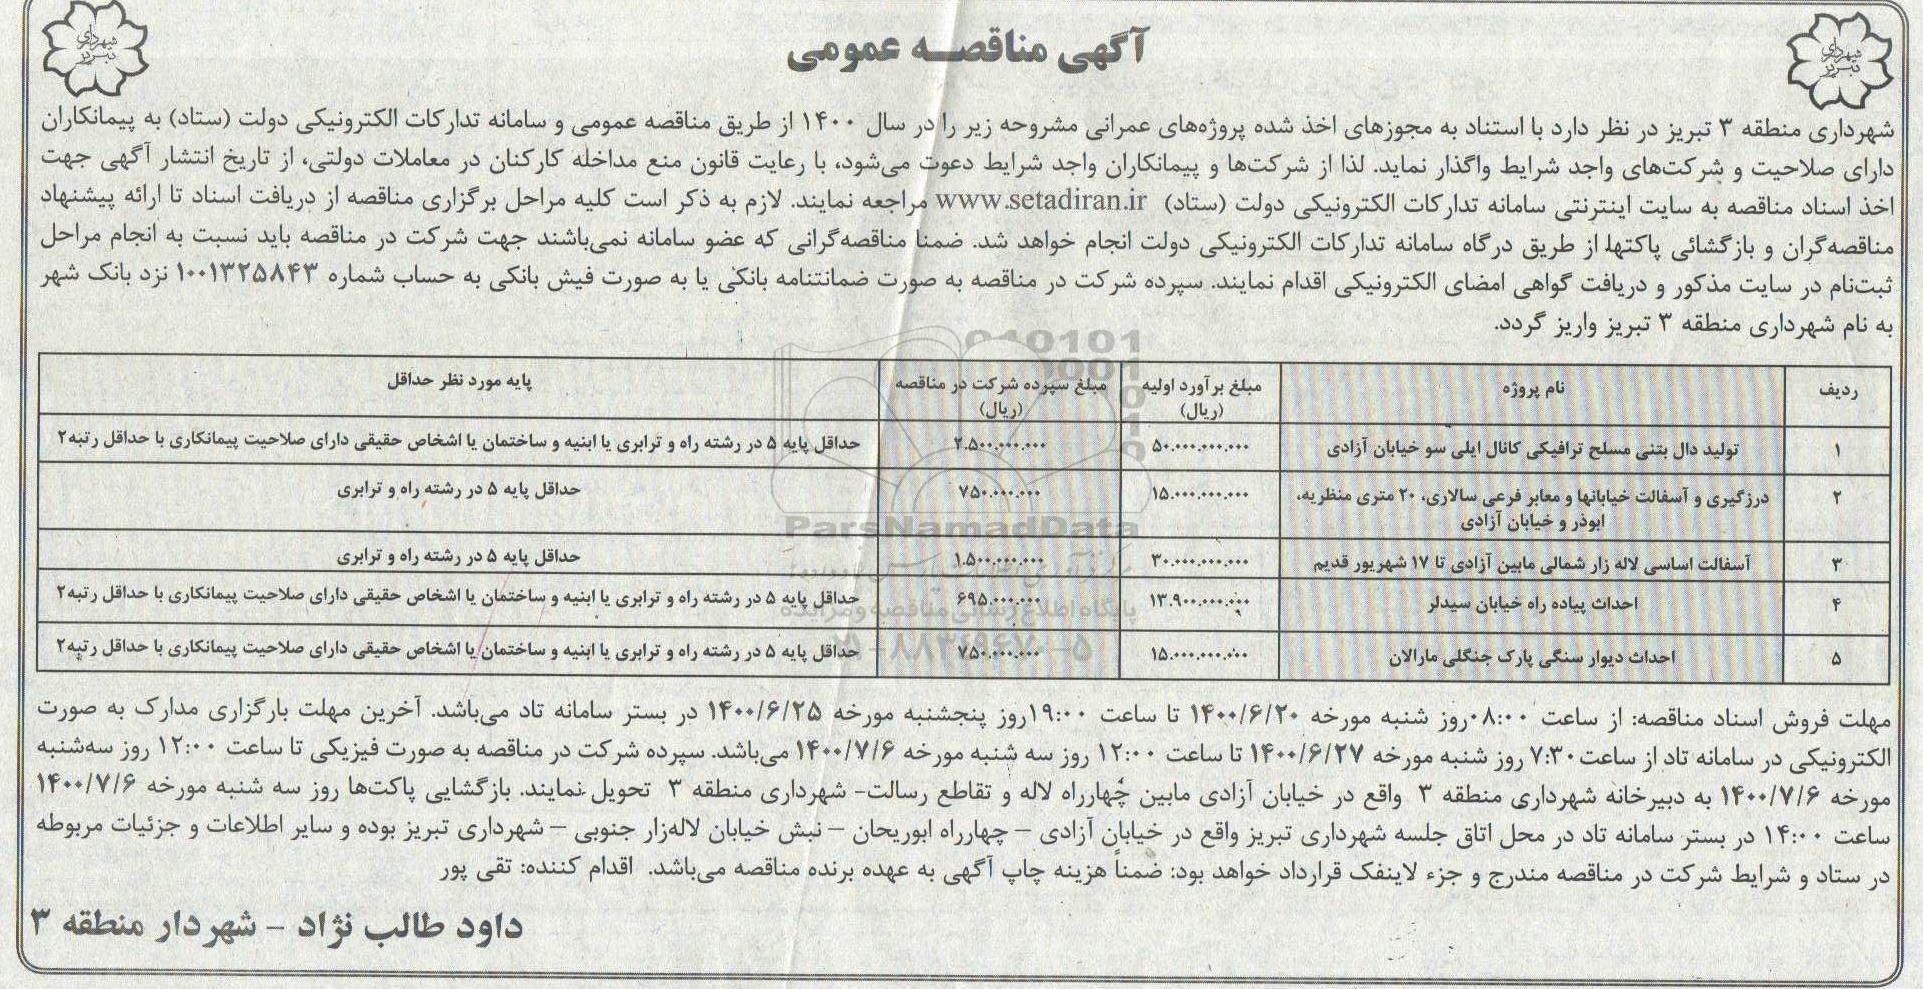 آگهی مناقصه عمومی
شهرداری تبریز
شهرداری تبریز
شهرداری منطقه ۳ تبریز در نظر دارد با استناد به مجوزهای اخذ شده پروژه‌های عمرانی مشروحه زیر را در سال ۱۴۰۰ از طریق مناقصه عمومی و سامانه تدارکات الکترونیکی دولت (ستاد) به پیمانکاران
دارای صلاحیت و شرکت‌های واجد شرایط واگذار نماید. لذا از شرکت‌ها و پیمانکاران واجد شرایط دعوت می‌شود، با رعایت قانون منع مداخله کارکنان در معاملات دولتی، از تاریخ انتشار آگهی جهت
اخذ اسناد مناقصه به سایت اینترنتی سامانه تدارکات الکترونیکی دولت (ستاد) www.setadiran.ir مراجعه نمایند. لازم به ذکر است کلیه مراحل برگزاری مناقصه از دریافت اسناد تا ارائه پیشنهاد
مناقصه‌گران و بازگشائی پاکتها از طریق درگاه سامانه تدارکات الکترونیکی دولت انجام خواهد شد. ضمنا مناقصه‌گرانی که عضو سامانه نمی‌باشند جهت شرکت در مناقصه باید نسبت به انجام مراحل
ثبت‌نام در سایت مذکور و دریافت گواهی امضای الکترونیکی اقدام نمایند. سپرده شرکت در مناقصه به صورت ضمانتنامه بانکی یا به صورت فیش بانکی به حساب شماره ۱۰۰۱۳۲۵۸۴۳ نزد بانک شهر
به نام شهرداری منطقه ۳ تبریز واریز گردد.
ردیف نام پروژه مبلغ برآورد اولیه (ریال) مبلغ سپرده شرکت در مناقصه (ریال) پایه مورد نظر حداقل
۱ تولید دال بتنی مسلح ترافیکی کانال ایلی سو خیابان آزادی ۵۰.۰۰۰.۰۰۰.۰۰۰ ۲.۵۰۰.۰۰۰.۰۰۰ حداقل پایه ۵ در رشته راه و ترابری یا ابنیه و ساختمان یا اشخاص حقیقی دارای صلاحیت پیمانکاری با حداقل رتبه۲
۲ درزگیری و آسفالت خیابانها و معابر فرعی سالاری، ۲۰ متری منظریه، ابوذر و خیابان آزادی ۱۵.۰۰۰.۰۰۰.۰۰۰ ۷۵۰.۰۰۰.۰۰۰ حداقل پایه ۵ در رشته راه و ترابری
۳ آسفالت اساسی لاله زار شمالی مابین آزادی تا ۱۷ شهریور قدیم ۳۰.۰۰۰.۰۰۰.۰۰۰ ۱.۵۰۰.۰۰۰.۰۰۰ حداقل پایه ۵ در رشته راه و ترابری
۴ احداث پیاده راه خیابان سیدلر ۱۳.۹۰۰.۰۰۰.۰۰۰ ۶۹۵.۰۰۰.۰۰۰ حداقل پایه ۵ در رشته راه و ترابری یا ابنیه و ساختمان یا اشخاص حقیقی دارای صلاحیت پیمانکاری با حداقل رتبه۲
۵ احداث دیوار سنگی پارک جنگلی مارالان ۱۵.۰۰۰.۰۰۰.۰۰۰ ۷۵۰.۰۰۰.۰۰۰ حداقل پایه ۵ در رشته راه و ترابری یا ابنیه و ساختمان یا اشخاص حقیقی دارای صلاحیت پیمانکاری با حداقل رتبه۲
ParsNamadData
پایگاه اطلاع رسانی مناقصه و مزایده
مهلت فروش اسناد مناقصه: از ساعت ۰۸:۰۰روز شنبه مورخه ۱۴۰۰/۶/۲۰ تا ساعت ۱۹:۰۰روز پنجشنبه مورخه ۱۴۰۰/۶/۲۵ در بستر سامانه تاد می‌باشد. آخرین مهلت بارگزاری مدارک به صورت
الکترونیکی در سامانه تاد از ساعت۷:۳۰ روز شنبه مورخه ۱۴۰۰/۶/۲۷ تا ساعت ۱۲:۰۰ روز سه شنبه مورخه ۱۴۰۰/۷/۶ می‌باشد. سپرده شرکت در مناقصه به صورت فیزیکی تا ساعت ۱۲:۰۰ روز سه‌شنبه
مورخه ۱۴۰۰/۷/۶ به دبیرخانه شهرداری منطقه ۳ واقع در خیابان آزادی مابین چهارراه لاله و تقاطع رسالت- شهرداری منطقه ۳ تحویل نمایند. بازگشایی پاکت‌ها روز سه شنبه مورخه ۱۴۰۰/۷/۶
ساعت ۱۴:۰۰ در بستر سامانه تاد در محل اتاق جلسه شهرداری تبریز واقع در خیابان آزادی – چهارراه ابوریحان – نبش خیابان لاله‌زار جنوبی – شهرداری تبریز بوده و سایر اطلاعات و جزئیات مربوطه
در ستاد و شرایط شرکت در مناقصه مندرج و جزء لاینفک قرارداد خواهد بود: ضمناً هزینه چاپ آگهی به عهده برنده مناقصه می‌باشد. اقدام کننده: تقی پور
داود طالب نژاد - شهردار منطقه ۳